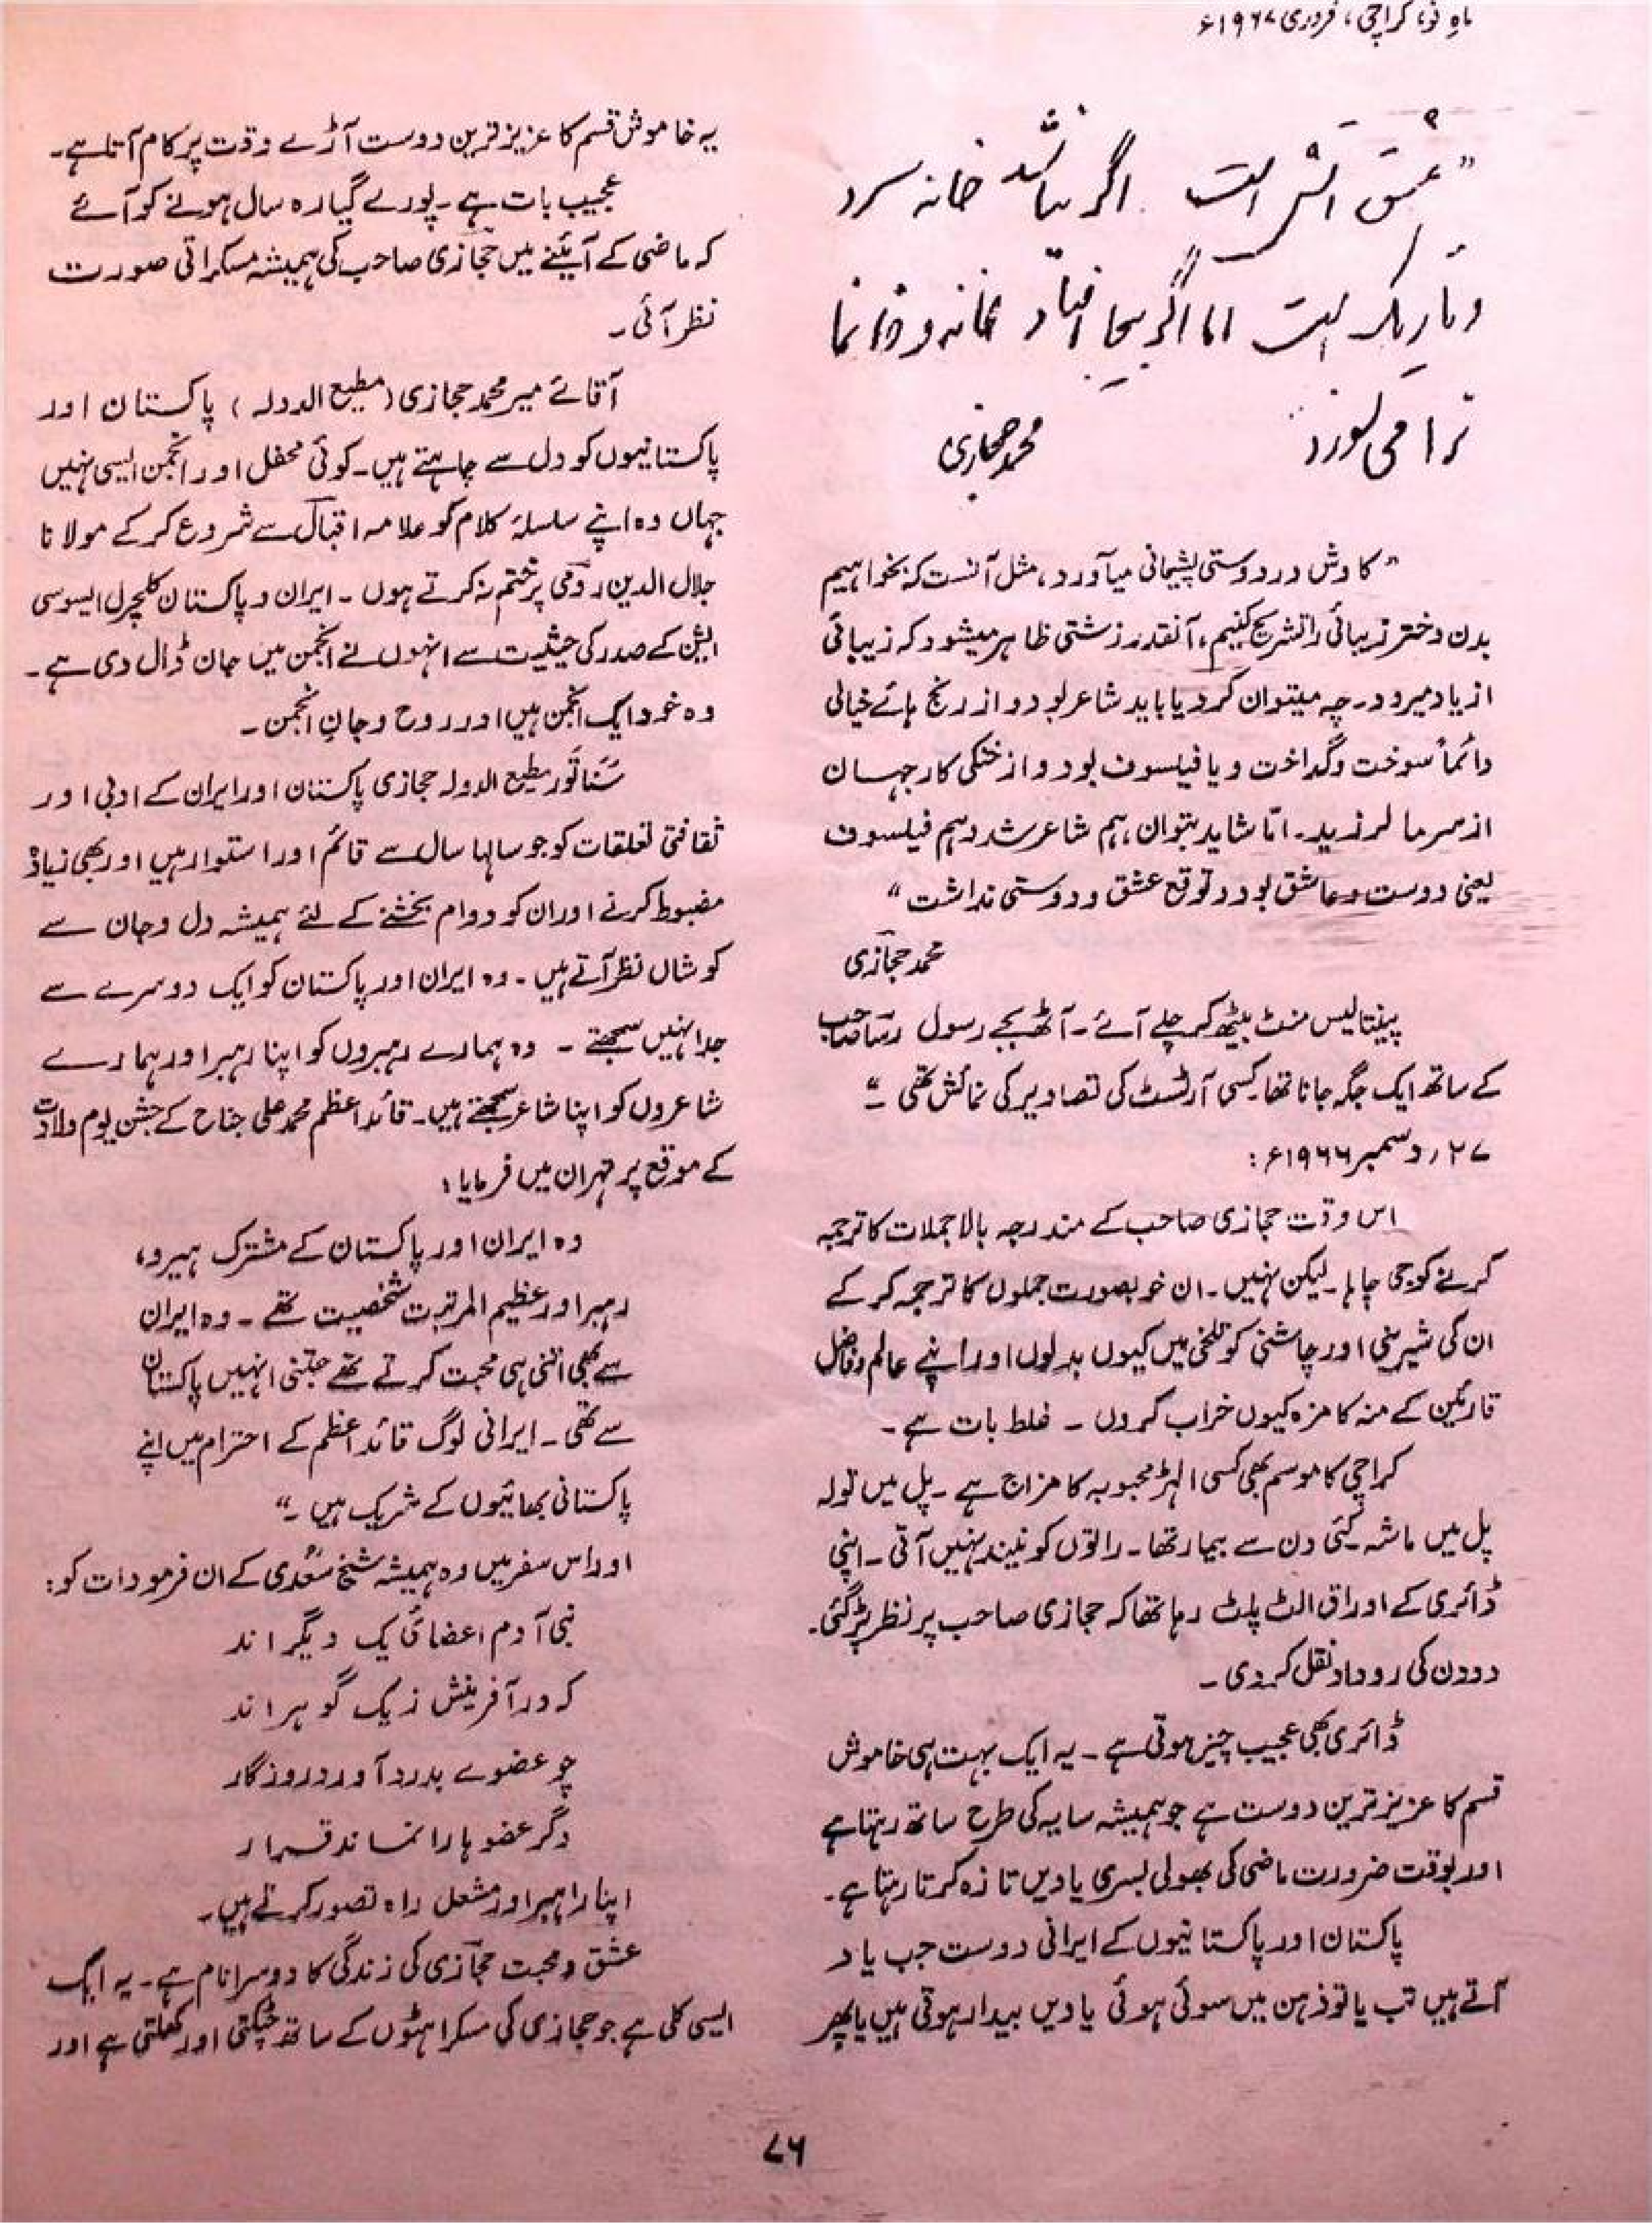 ماہِ نو، کراچی، فروری ۱۹۶۷ء
"عشق آتش است اگر نباشد خانہ سرد
و تاریک است اما اگر بیجا افتاد خانہ و
ترا می سوزد محمد حجازی
"کاوش در دوستی پشیمانی میآورد، مثل آنست کہ بخواہیم
بدن دختر زیبائی را تشریح کنیم، آنقدر زشتی ظاہر میشود کہ زیبائی
از یاد میرود۔ چہ میتوان کرد یا باید شاعر بود و از رنج ہائے خیالی
دائماً سوخت و گداخت و یا فیلسوف بود و از خنکی کار جہان
از سرما لرزید۔ امّا شاید بتوان ہم شاعر شد و ہم فیلسوف
یعنی دوست و عاشق بود و توقع عشق و دوستی نداشت"
محمد حجازی
پینتالیس منٹ بیٹھ کر چلے آئے۔ آٹھ بجے رسول رسا صاحب
کے ساتھ ایک جگہ جانا تھا۔ کسی آرٹسٹ کی تصاویر کی نمائش تھی۔"
۲۷ر دسمبر ۱۹۶۶ء:
اس وقت حجازی صاحب کے مندرجہ بالا جملات کا ترجمہ
کرنے کو جی چاہا۔ لیکن نہیں۔ ان خوبصورت جملوں کا ترجمہ کر کے
ان کی شیرینی اور چاشنی کو تلخی میں کیوں بدلوں اور اپنے عالم و فاضل
قارئین کے منہ کا مزہ کیوں خراب کروں ۔ غلط بات ہے۔
کراچی کا موسم بھی کسی الہڑ محبوبہ کا مزاج ہے۔ پل میں تولہ
پل میں ماشہ۔ کئی دن سے بیمار تھا۔ راتوں کو نیند نہیں آتی۔ اپنی
ڈائری کے اوراق الٹ پلٹ رہا تھا کہ حجازی صاحب پر نظر پڑ گئی۔
دو دن کی روداد نقل کر دی۔
ڈائری بھی عجیب چیز ہوتی ہے۔ یہ ایک بہت ہی خاموش
قسم کا عزیز ترین دوست ہے جو ہمیشہ سایہ کی طرح ساتھ رہتا ہے
اور بوقت ضرورت ماضی کی بھولی بسری یادیں تازہ کرتا رہتا ہے۔
پاکستان اور پاکستانیوں کے ایرانی دوست جب یاد
آتے ہیں تب یا تو ذہن میں سوئی ہوئی یادیں بیدار ہوتی ہیں یا پھر
یہ خاموش قسم کا عزیز ترین دوست آڑے وقت پر کام آتا ہے۔
عجیب بات ہے۔ پورے گیارہ سال ہونے کو آئے
کہ ماضی کے آئینے میں حجازی صاحب کی ہمیشہ مسکراتی صورت
نظر آئی۔
آقائے میر محمد حجازی (مطیع الدولہ) پاکستان اور
پاکستانیوں کو دل سے چاہتے ہیں۔ کوئی محفل اور انجمن ایسی نہیں
جہاں وہ اپنے سلسلۂ کلام کو علامہ اقبال سے شروع کر کے مولانا
جلال الدین رومی پر ختم نہ کرتے ہوں۔ ایران و پاکستان کلچرل ایسوسی
ایشن کے صدر کی حیثیت سے انہوں نے انجمن میں جان ڈال دی ہے۔
وہ خود ایک انجمن ہیں اور روح و جانِ انجمن۔
سناتور مطیع الدولہ حجازی پاکستان اور ایران کے ادبی اور
ثقافتی تعلقات کو جو سالہا سال سے قائم اور استوار ہیں اور بھی زیادہ
مضبوط کرنے اور ان کو دوام بخشنے کے لئے ہمیشہ دل و جان سے
کوشاں نظر آتے ہیں۔ وہ ایران اور پاکستان کو ایک دوسرے سے
جدا نہیں سمجھتے ۔ وہ ہمارے رہبروں کو اپنا رہبر اور ہمارے
شاعروں کو اپنا شاعر سمجھتے ہیں۔ قائد اعظم محمد علی جناح کے جشن یوم ولادت
کے موقع پر تہران میں فرمایا:
وہ ایران اور پاکستان کے مشترک ہیرو،
رہبر اور عظیم المرتبت شخصیت تھے۔ وہ ایران
سے بھی اتنی ہی محبت کرتے تھے جتنی انہیں پاکستان
سے تھی۔ ایرانی لوگ قائد اعظم کے احترام میں اپنے
پاکستانی بھائیوں کے شریک ہیں۔"
اور اس سفر میں وہ ہمیشہ شیخ سعدی کے ان فرمودات کو:
بنی آدم اعضائ یک دیگر اند
کہ در آفرینش ز یک گوہر اند
چو عضوے بدرد آورد روزگار
دگر عضوہا را نماند قرار
اپنا راہبر اور مشعل راہ تصور کرتے ہیں۔
عشق و محبت حجازی کی زندگی کا دوسرا نام ہے۔ یہ ایک
ایسی کلی ہے جو حجازی کی مسکراہٹوں کے ساتھ چٹکتی اور کھلتی ہے اور
۷۶